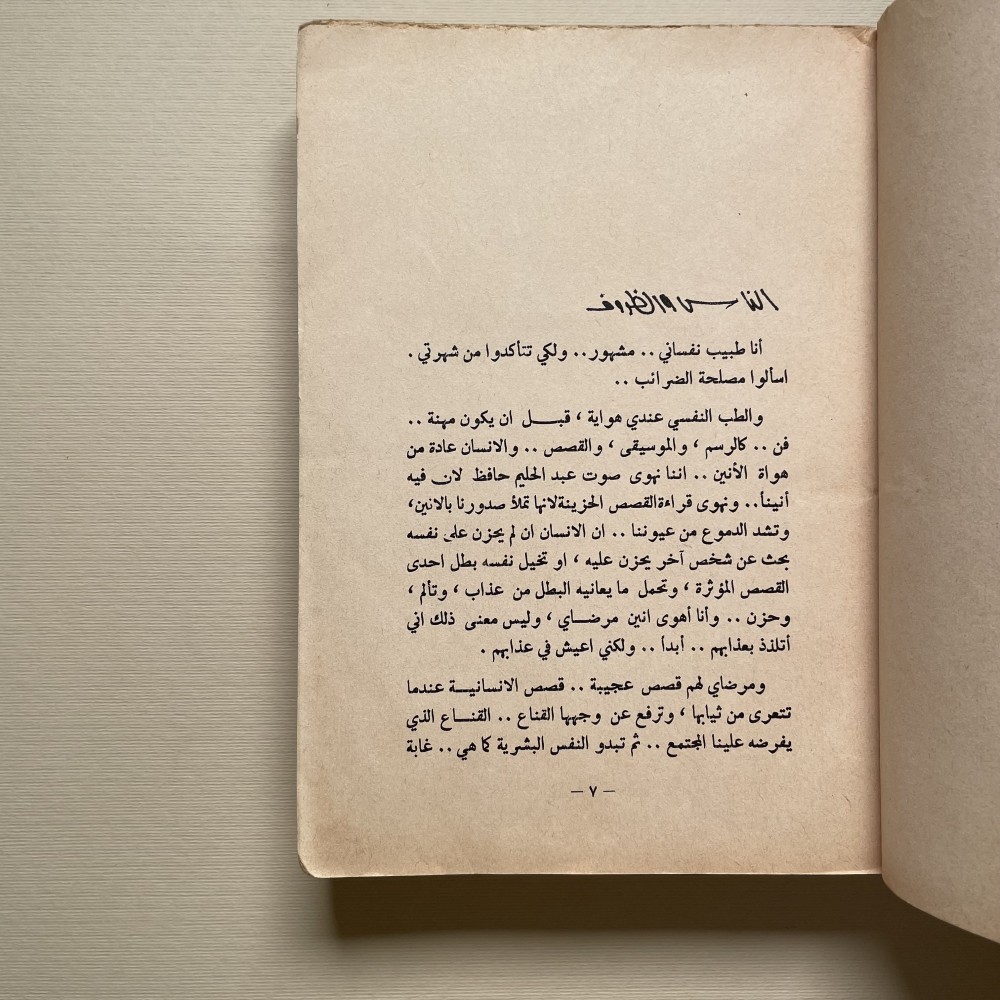 الناس والظروف
أنا طبيب نفساني .. مشهور .. ولكي تتأكدوا من شهرتي .
اسألوا مصلحة الضرائب ..
والطب النفسي عندي هواية ، قبل ان يكون مهنة ..
فن .. كالرسم ، والموسيقى ، والقصص .. والانسان عادة من
هواة الأنين .. اننا نهوى صوت عبد الحليم حافظ لان فيه
أنيناً .. ونهوى قراءة القصص الحزينة لانها تملأ صدورنا بالانين،
وتشد الدموع من عيوننا .. ان الانسان ان لم يحزن على نفسه
بحث عن شخص آخر يحزن عليه ، او تخيل نفسه بطل احدى
القصص المؤثرة ، وتحمل ما يعانيه البطل من عذاب ، وتألم ،
وحزن .. وأنا أهوى انين مرضاي ، وليس معنى ذلك اني
أتلذذ بعذابهم .. أبداً .. ولكني اعيش في عذابهم .
ومرضاي لهم قصص عجيبة .. قصص الانسانية عندما
تتعرى من ثيابها ، وترفع عن وجهها القناع .. القناع الذي
يفرضه علينا المجتمع .. ثم تبدو النفس البشرية كما هي .. غابة
— ٧ —